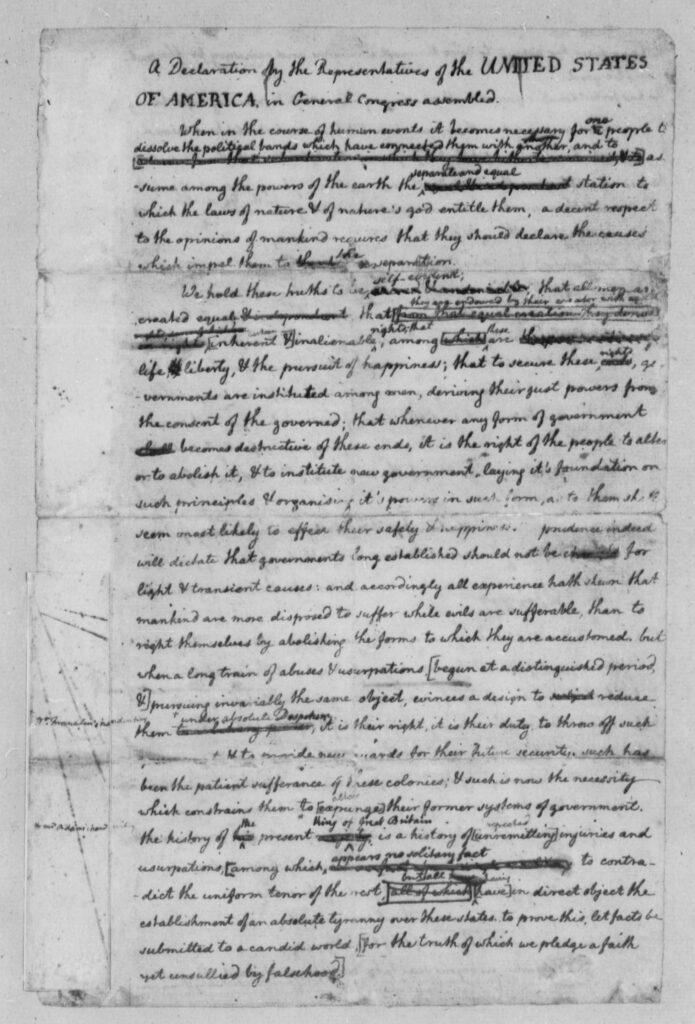 A Declaration by the Representatives of the UNITED STATES
OF AMERICA, in General Congress assembled.
When in the course of human events it becomes necessary for one people to
dissolve the political bands which have connected them with another, and to
as
separate and equal
-sume among the powers of the earth the station to
which the laws of nature & of nature's god entitle them, a decent respect
to the opinions of mankind requires that they should declare the causes
which impel them to the separation.
self-evident;
We hold these truths to be, that all men are
they are endowed by their creator with
created equal & independant, that from that equal creation they derive
rights; that these
inherent & inalienable, among which are
life, liberty, & the pursuit of happiness; that to secure these rights, go
-vernments are instituted among men, deriving their just powers from
the consent of the governed; that whenever any form of government
shall becomes destructive of these ends, it is the right of the people to alter
or to abolish it, & to institute new government, laying it's foundation on
such principles & organising it's powers in such form, as to them sh
seem most likely to effect their safety & happiness. prudence indeed
will dictate that governments long established should not be for
light & transient causes: and accordingly all experience hath shewn that
mankind are more disposed to suffer while evils are sufferable, than to
right themselves by abolishing the forms to which they are accustomed. but
when a long train of abuses & usurpations, [begun at a distinguished period,
&] pursuing invariably the same object, evinces a design to reduce
Dr Franklin's handwriting
under absolute Despotism
them, it is their right, it is their duty, to throw off such
& to provide new guards for their future security. such has
been the patient sufferance of these colonies; & such is now the necessity
alter
which constrains them to [expunge] their former systems of government.
Mr Adams' handwriting
the King of Great Britain repeated
the history of his present is a history of [unremitting] injuries and
appears no solitary fact
usurpations, [among which, to contra-
but all having
-dict the uniform tenor of the rest, [all of which] [have] in direct object the
establishment of an absolute tyranny over these states. to prove this, let facts be
submitted to a candid world, [for the truth of which we pledge a faith
yet unsullied by falsehood.]